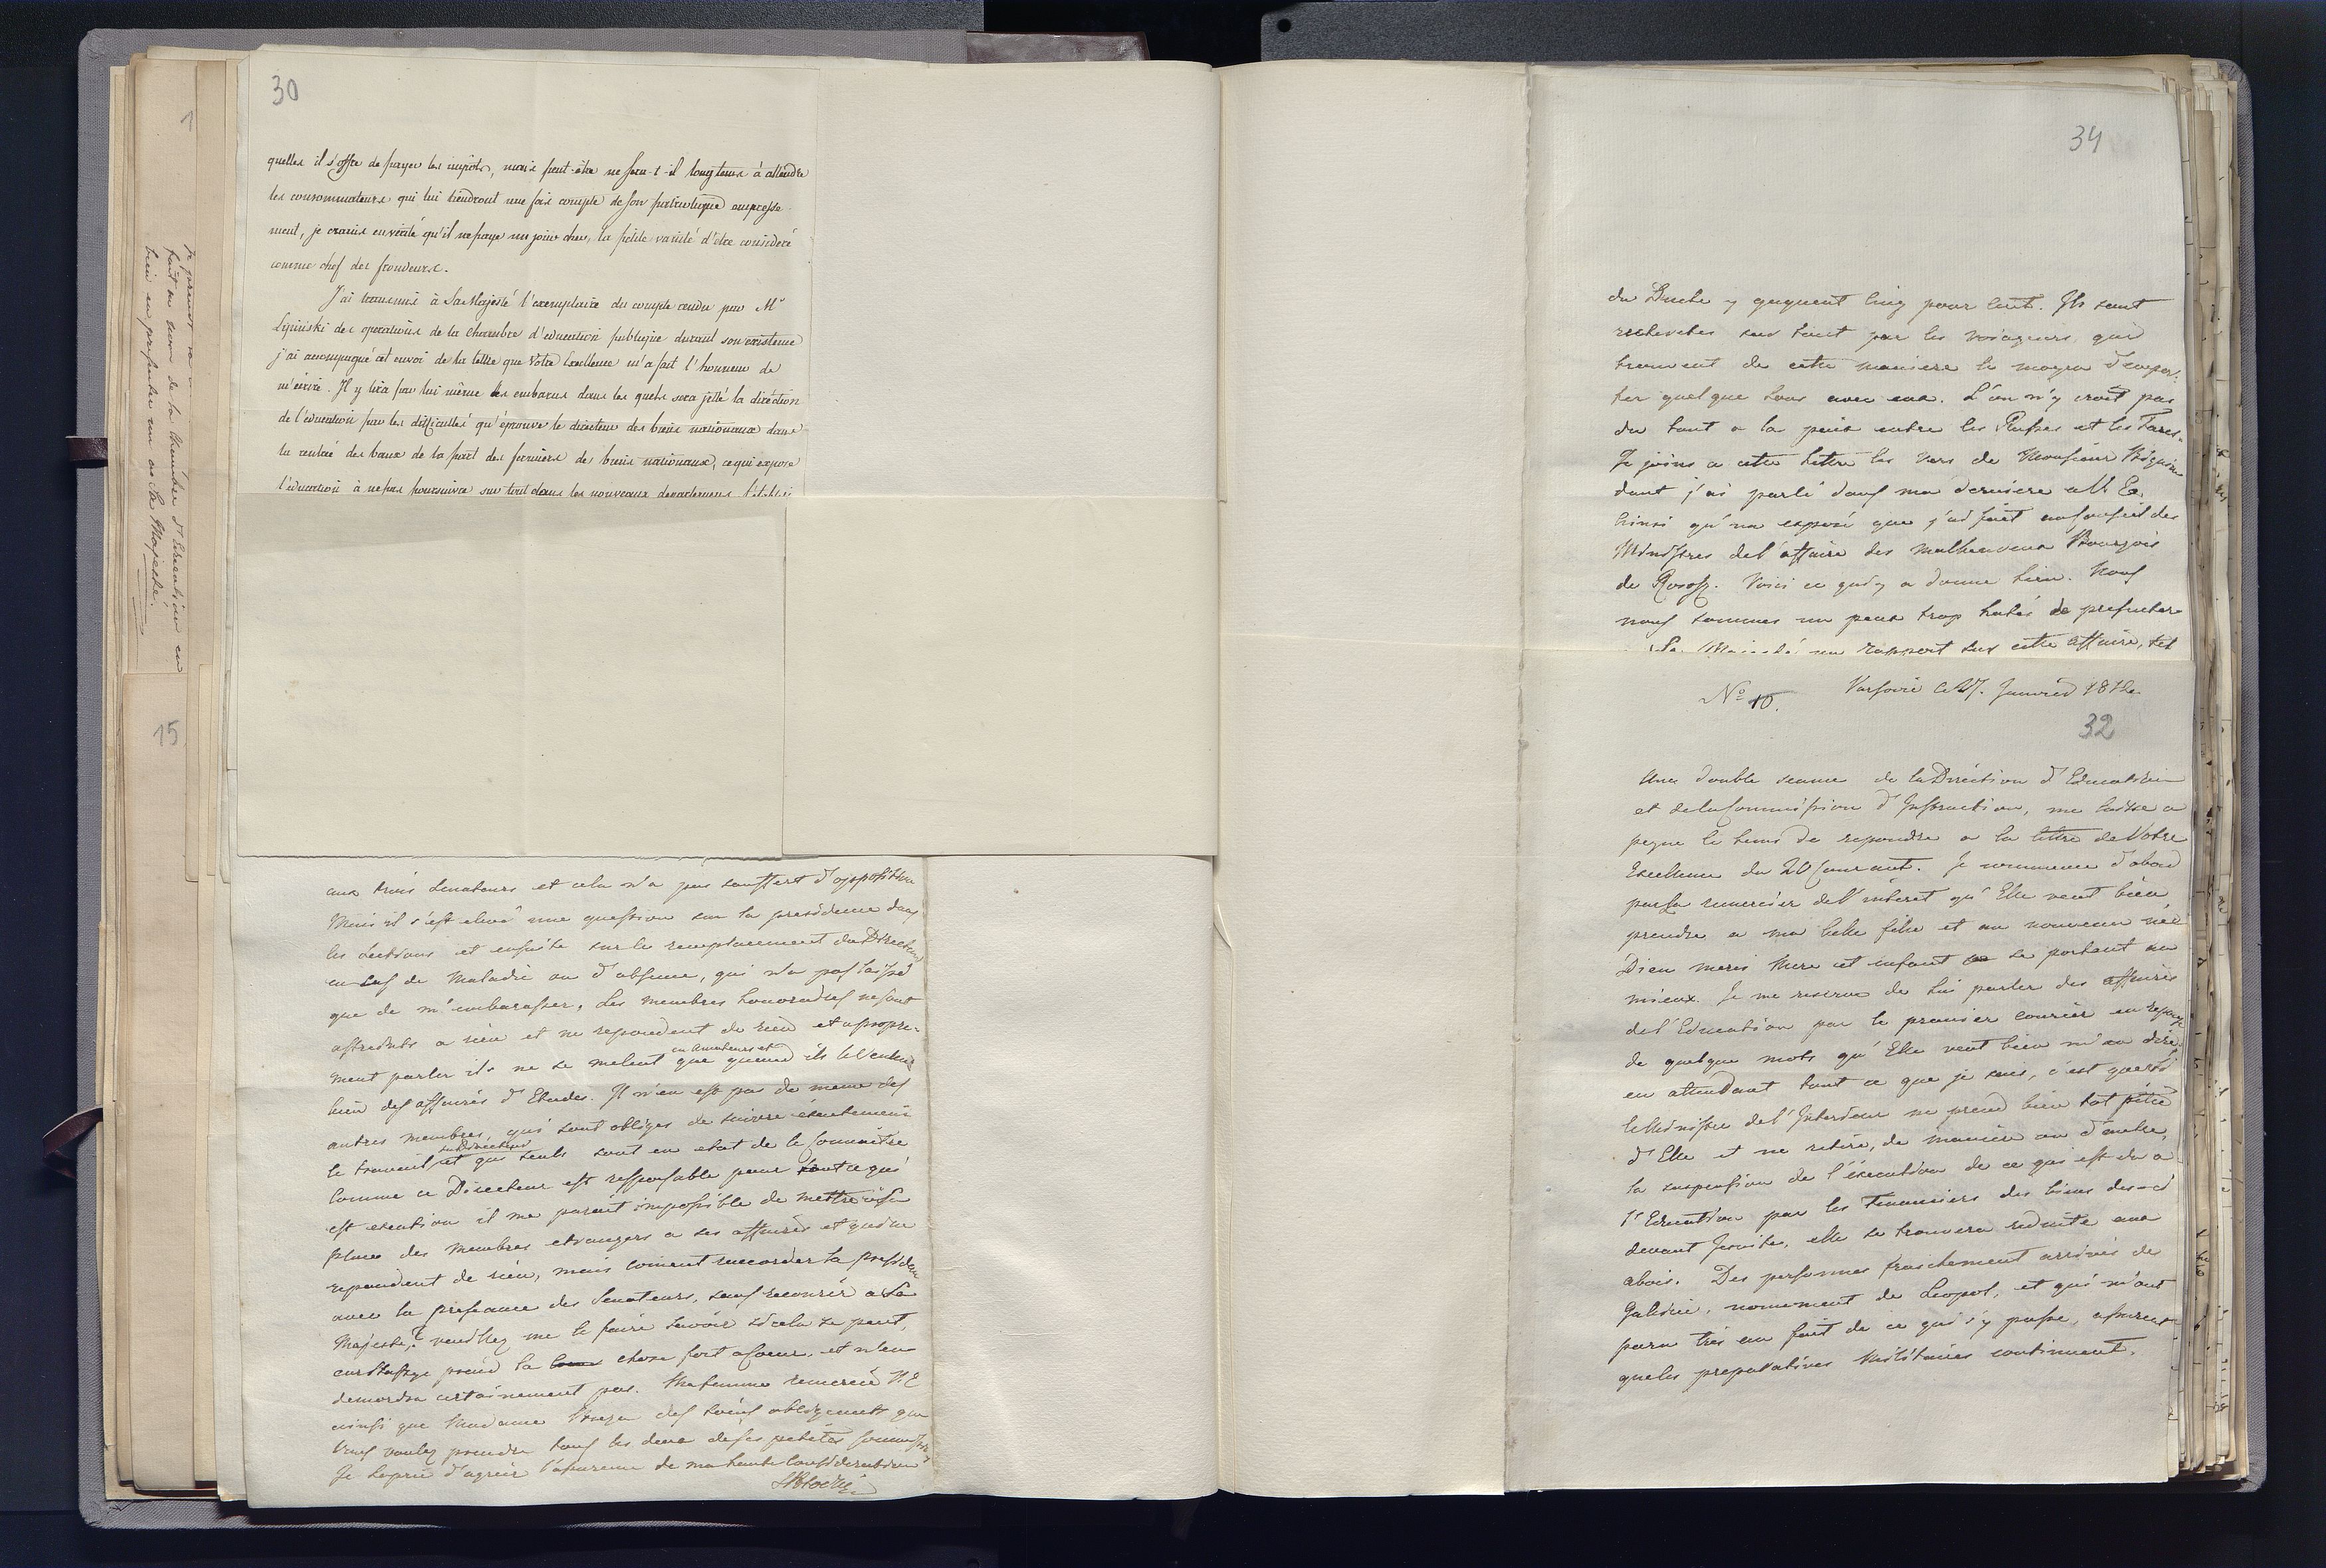 30
quelles il s'offre de payer les impôts, mais peut-être ne sera-t-il longtems à attendre
les consommateurs qui lui tiendront une fois compte de son patriotique empresse
ment, je crains en vérité qu'il ne paye un jour cher, la petite vanité d'être considéré
comme chef des frondeurs.
J'ai transmis à Sa Majesté l'exemplaire du compte rendu par Mr
Lipinski des operations de la Chambre d'education publique durant son existence
j'ai accompagné cet envoi de la lettre que Votre Excellence m'a fait l'honneur de
m'écrire. Il y lira par lui même les embaras dans les quels sera jetté la direction
de l'education par les difficultés qu'éprouve le directeur des biens nationaux dans
la rentrée des baux de la part des fermiers de biens nationaux, ce qui expose
l'education à ne pas poursuivre sur tout dans les nouveaux departemens
1
de la Chambre d'Education en
bien en presenter un a Sa Majesté.
15
aux trois Senateurs et cela n'a pas souffert d'opposition
Mais il s'est elevé une question sur la presidence dans
les Sections et ensuite sur le remplacement du Directeur
en cas de Maladie ou d'absence, qui n'a pas laissé
que de m'embarasser. Les membres honoraires ne sont
astreints a rien et ne repondent de rien et a propre-
ment parler ils ne se melent en Amateurs et que quand ils le veulent
bien des affaires d'Etudes. Il n'en est pas de meme des
autres membres, qui sont obligés de suivre exactement
le travail, et qui seuls sont en etat de le connaitre
Comme ce Directeur est responsable pour tout ce qui
est execution il me parait impossible de mettre à sa
place des Membres etrangers a ses affaires et qui ne
repondent de rien, mais coment raccorder la presidence
avec la preseance des Senateurs, sans recourir a Sa
Majesté? veuillez me le faire savoir si cela se peut,
car Stassye prend la chose fort a coeur, et n'en
demordra certainement pas. Ma femme remercie V. E
ainsi que Madame des soins obligeants que
Vous voulez prendre tous les deux de ses petites
Je la prie d'agréer l'assurance de ma haute Consideration
34
du Bucha y gagnent cinq pour cent. Ils sont
recherchés sur tout par les voiageurs qui
trouvent de cette maniere le moyen d'empor-
ter quelque sous avec eux. L'on n'y croit pas
du tout a la paix entre les Russes et les Turcs.
Je joins a cette lettre les Vers de Monsieur
dont j'ai parlé dans ma derniere a V. E.
ainsi qu'un exposé que j'ai fait au Conseil des
Ministres de l'affaire des malheureux Bourgois
de Rososz. Voici ce qui y a donné lieu. Nous
nous sommes un peu trop hatés de presenter
Sa Majesté un rapport sur cette affaire, tel
No 10. Varsovie le 27. Janvier 1812.
32
Une double seance de la Direction d'Education
et de la Commission d'Instruction, me laisse a
peyne le tems de repondre a la lettre de Votre
Excellence du 20 Courant. Je commence d'abord
par La remercier de l'interet qu'Elle veut bien
prendre a ma belle fille et au nouveau né
Dieu merci Mere et enfant se portent au
mieux. Je me reserve de Lui parler des affaires
de l'Education par le premier courier en reponse
de quelque mots qu'Elle veut bien m'en dire
en attendant tout ce que je sais, c'est que si
le Ministre de l'Interieur ne prend bien tot pitié
d'Elle et ne retire, de maniere ou d'autre,
la suspension de l'éxecution de ce qui est du a
l'Education par les Tenanciers des biens ci-
devant Jesuites, elle se trouvera reduite aux
abois. Des personnes fraichement arrivées de
Galicie, nomement de Leopol, et qui m'ont
paru très au fait de ce qui s'y passe, assurent
que les preparatives Militaires continuent.